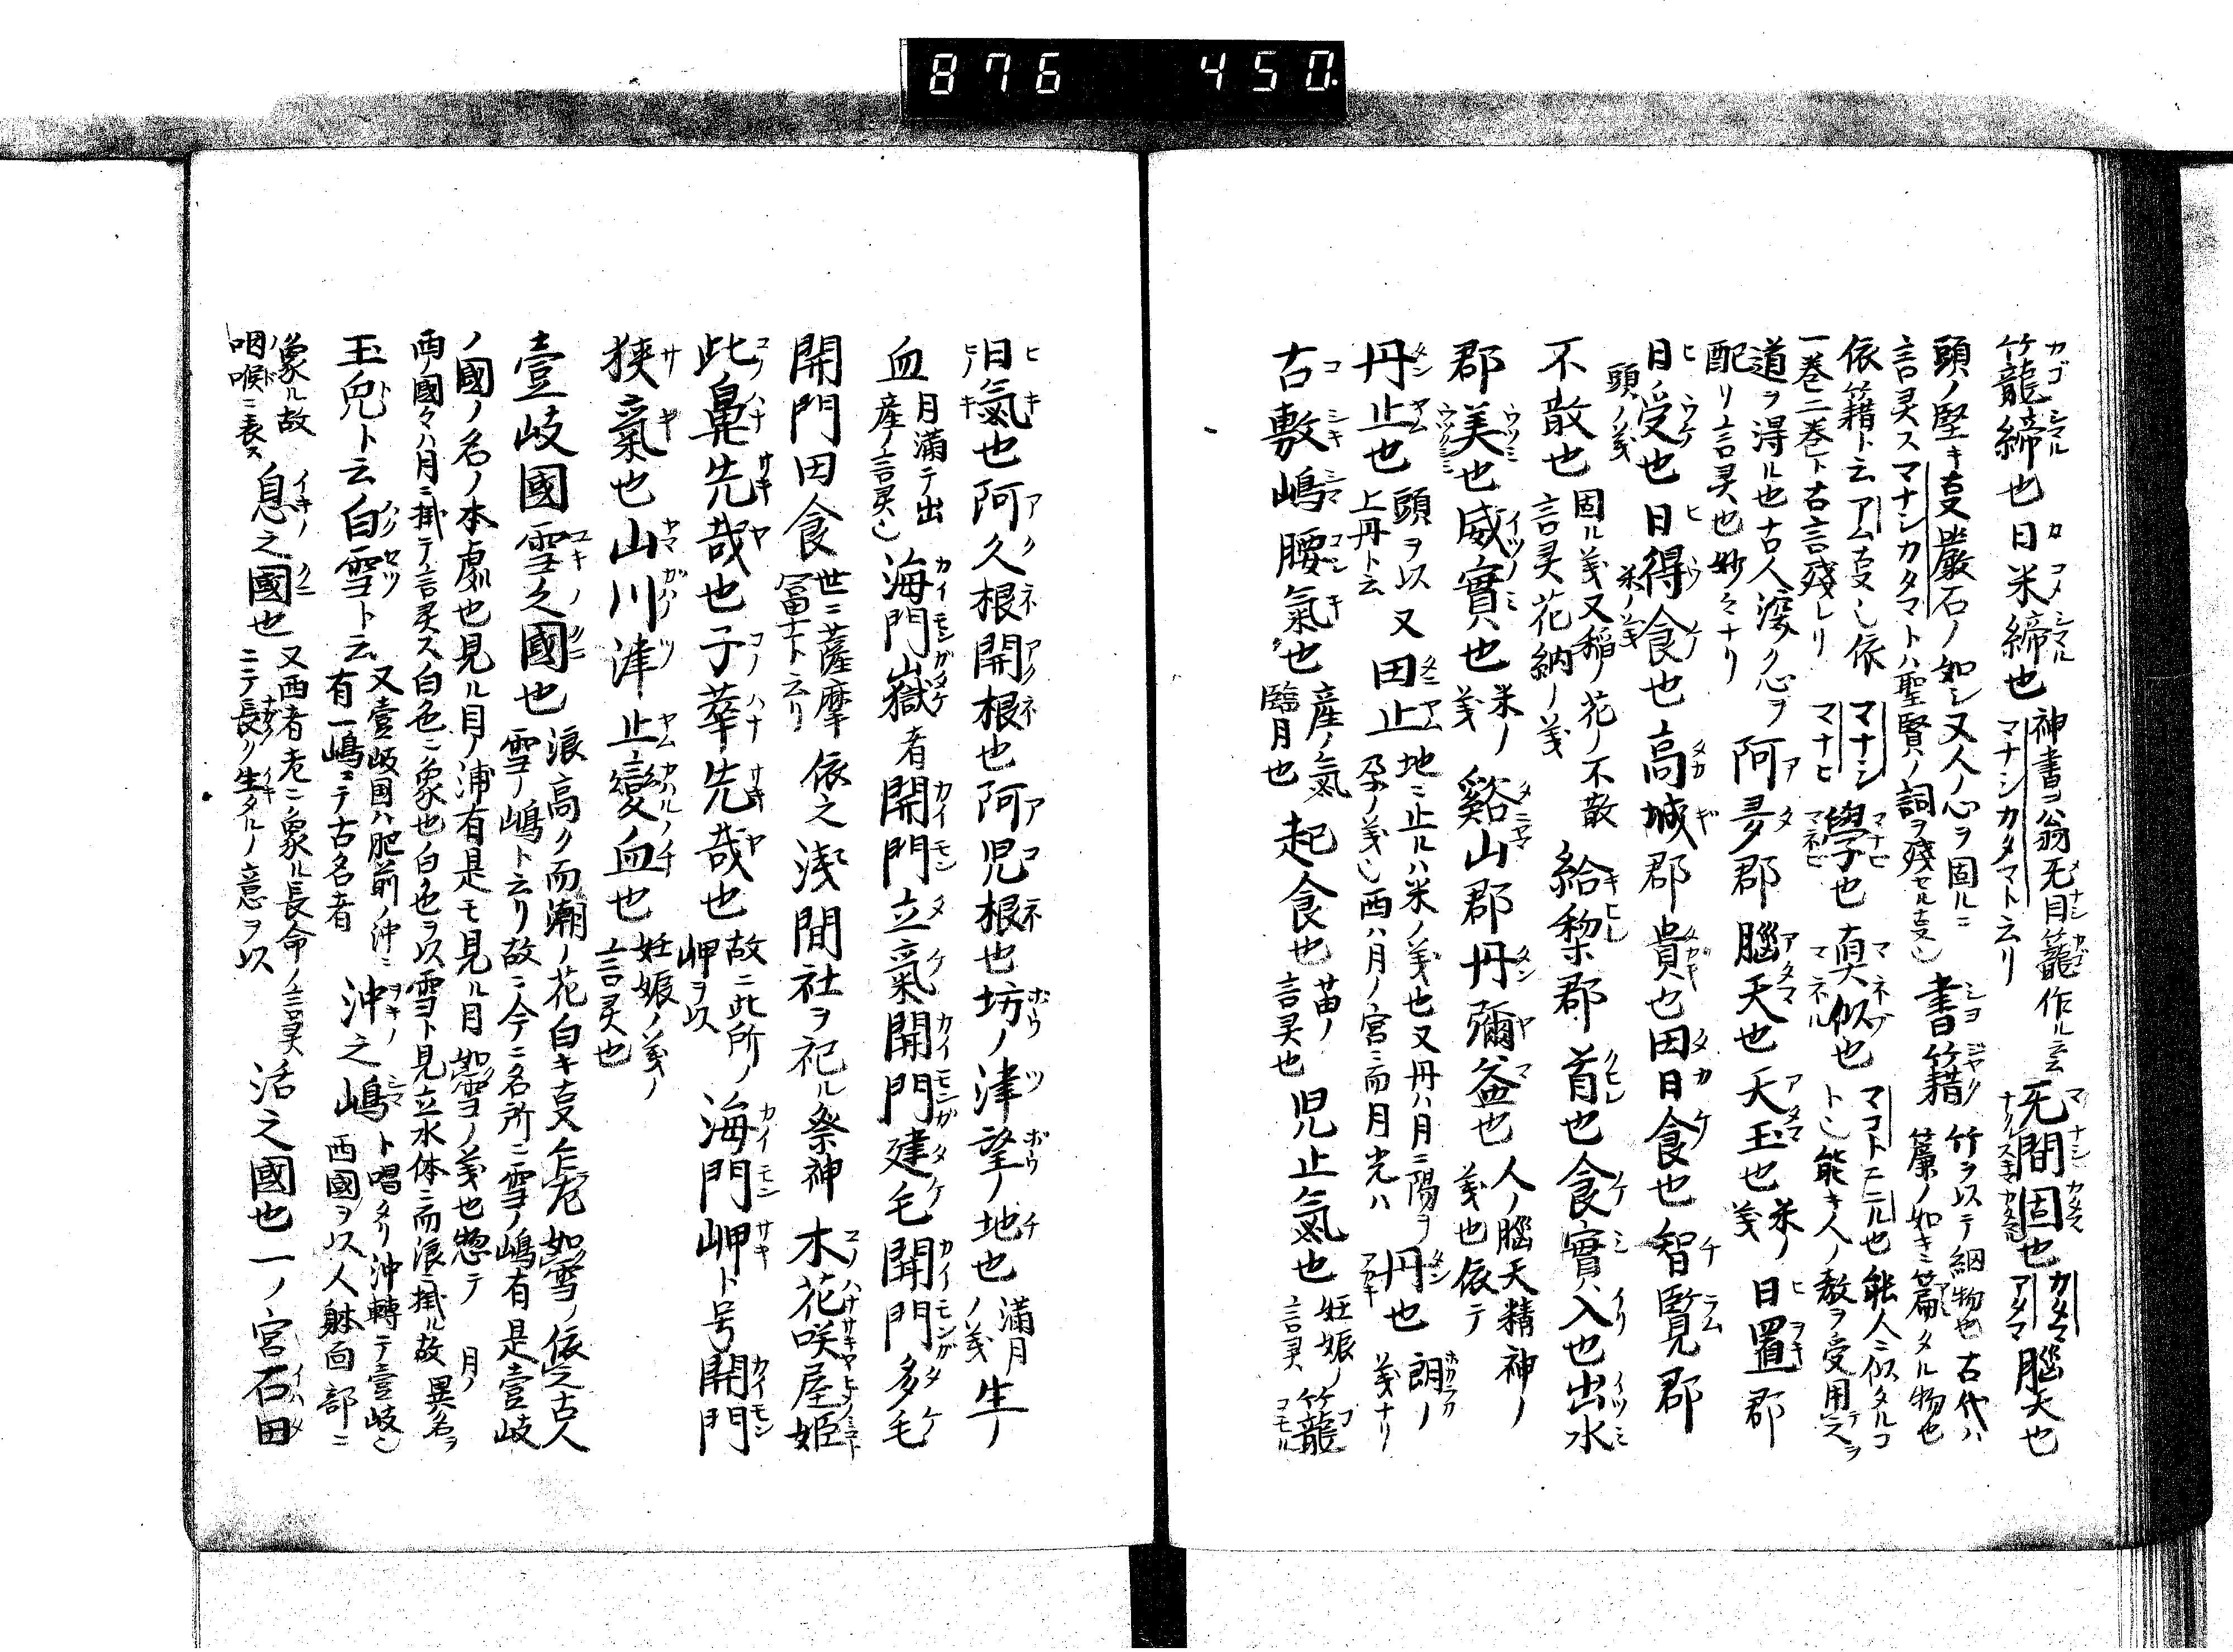 876 450.
竹籠締也日米締也 神書ヨ翁无目籠作ル云云 マナシカタマト云リ 无間固也 カタマ アタマ 腦天也
頭ノ堅キ叓巖石ノ如シ又人ノ心ヲ固ルニ 言灵スマナシカタマトハ聖賢ノ詞ヲ殘セル叓也 書籍 竹ヲ以テ細物也古代ハ 簾ノ如キニ篇タル物也
依籍ト云アム叓也依 一巻二巻ト古言殘レリ マナシ マナヒ 學也真似也 マコトニニル也能人ニ似タルコ ト也能キ人ノ教ヲ受用テ
道ヲ淂ル也古人深ク心ヲ 配リ言灵也妙々ナリ 阿夛郡腦天也天玉也 米ノ義 日置郡
日ノ受也日得食也高城郡貴也田日食也智覧郡
頭ノ義 米ノ義
不散也 固ル義又稲ノ花ノ不散 言灵花納ノ義 給黎郡首也食實入也出水
郡美也威實也 米ノ義 谿山郡丹彌益也 人ノ腦天精神ノ 義也依テ
丹止也 頭ヲ以 上丹ト云 又田止 地ニ止ルハ米ノ義也又丹ハ月ニ陽ヲ 孕ノ義也西ハ月ノ宮ニ而月光ハ 丹也 朗ノ 義ナリ
古敷嶋腰氣也 産ノ氣 臨月也 起食也 苗ノ 言灵也 児止氣也 妊娠ノ 言灵 竹籠
日氣也阿久根開根也阿児根也坊ノ津望ノ地也 満月 ノ義 生ノ
血 月満テ出 産ノ言灵也 海門嶽者開門立氣開門建毛開門多毛
開門田食 世ニ薩摩 冨士ト云リ 依之浅間社ヲ祀ル祭神木花咲屋姫
此鼻先哉也子華先哉也 故ニ此所ノ 岬ヲ以 海門岬ト号開門
狭氣也山川津止變血也 妊娠ノ義ノ 言灵也
壹岐國雪之國也 浪高ク而潮ノ花白キ叓 如雪ノ依之古人 雪ノ嶋ト云リ故ニ今ニ名所ニ雪ノ嶋有是壹岐
ノ國ノ名ノ本處也見ル目ノ浦有是モ見ル月如雪ノ義也惣テ月ノ 西ノ國々ハ月ニ掛テ言灵ス白色ニ象也白色ヲ以雪ト見立水体ニ而浪ニ掛ル故異名ヲ
玉兎ト云白雪ト云 又壹岐国ハ肥前ノ沖ニ 有一嶋ニテ古名者 沖之嶋 ト唱タリ沖轉テ壹岐也 西國ヲ以人躰面部ニ
象ル故 咽喉ニ表ス 息之國也 又西者老ニ象ル長命ノ言灵 ニテ長ク生タルノ意ヲ以 活之國也一ノ宮石田